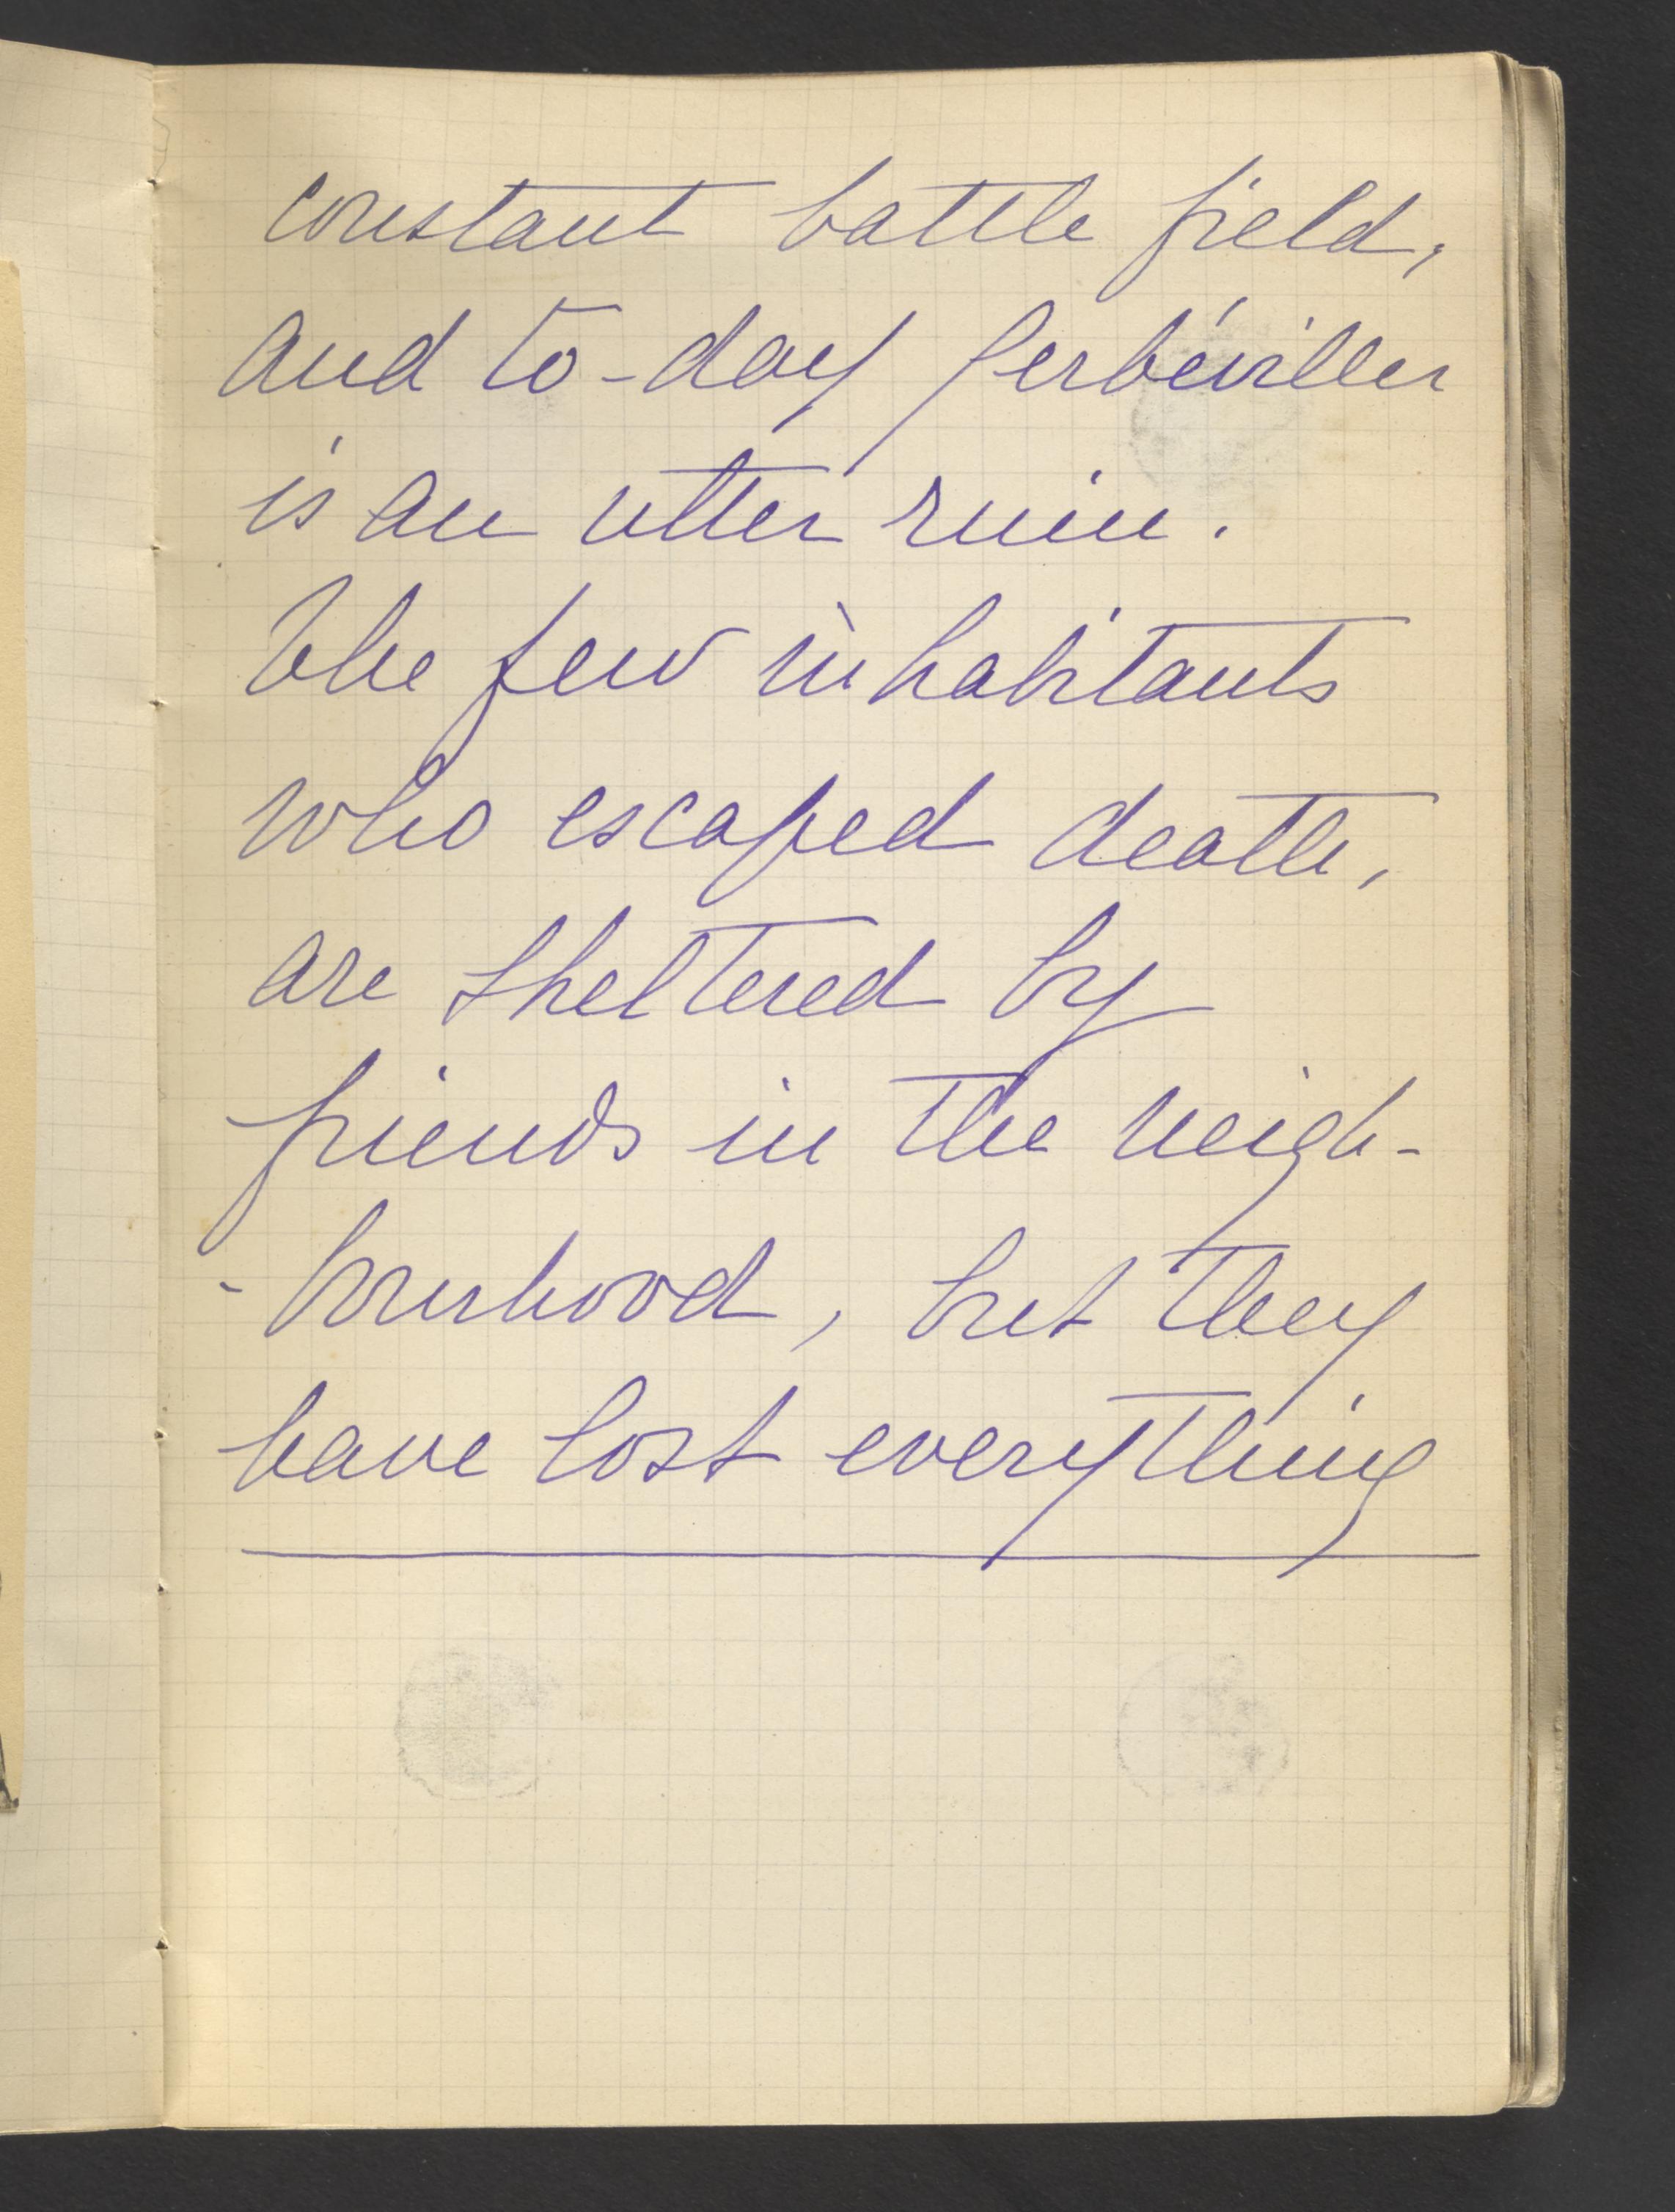 constant battle field,
and to-day Gerbéviller
is an utter ruin.
The few inhabitants
who escaped death,
are sheltered by
friends in the neigh-
-bourhood, but they
have lost everything